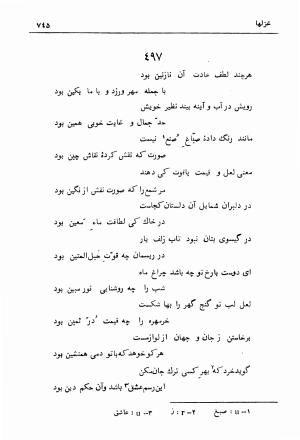 غزلها
۷۴۵
۴۹۷
هرچند لطف عادت آن نازنین بود
با جمله مهر ورزد و با ما بکین بود
رویش در آب و آینه بیند نظیر خویش
حد جمال و غایت خوبی همین بود
مانند رنگ دادهٔ صبّاغ ۱ صنع نیست
صورت که نقش کردهٔ نقاش چین بود
معنی لعل و قیمت یاقوت کی دهند
مر شمع را که صورت نقش از نگین بود
در دلبران شمایل آن دلستان کجاست
در خاک کی لطافت ماء معین بود
در گیسوی بتان نبود تاب زلف یار
در ریسمان چه قوّت حبل‌المتین بود
ای دوست با رخ تو چه باشد چراغ ماه
شب را چه روشنایی نور مبین بود
لعل لب تو گنج گهر را بها شکست
خرمهره را چه قیمت درّ ثمین بود
برخاستن ز جان و جهان از لوازمست
هر کو خوهد که با تو دمی همنشین بود
گوید خرد که ۲ بهر کسی ترك جان مکن
این رسم عشق ۳ باشد وآن حکم دین بود
۱-- u : صبغ ۲-- r : ز ۳-- u : عاشق